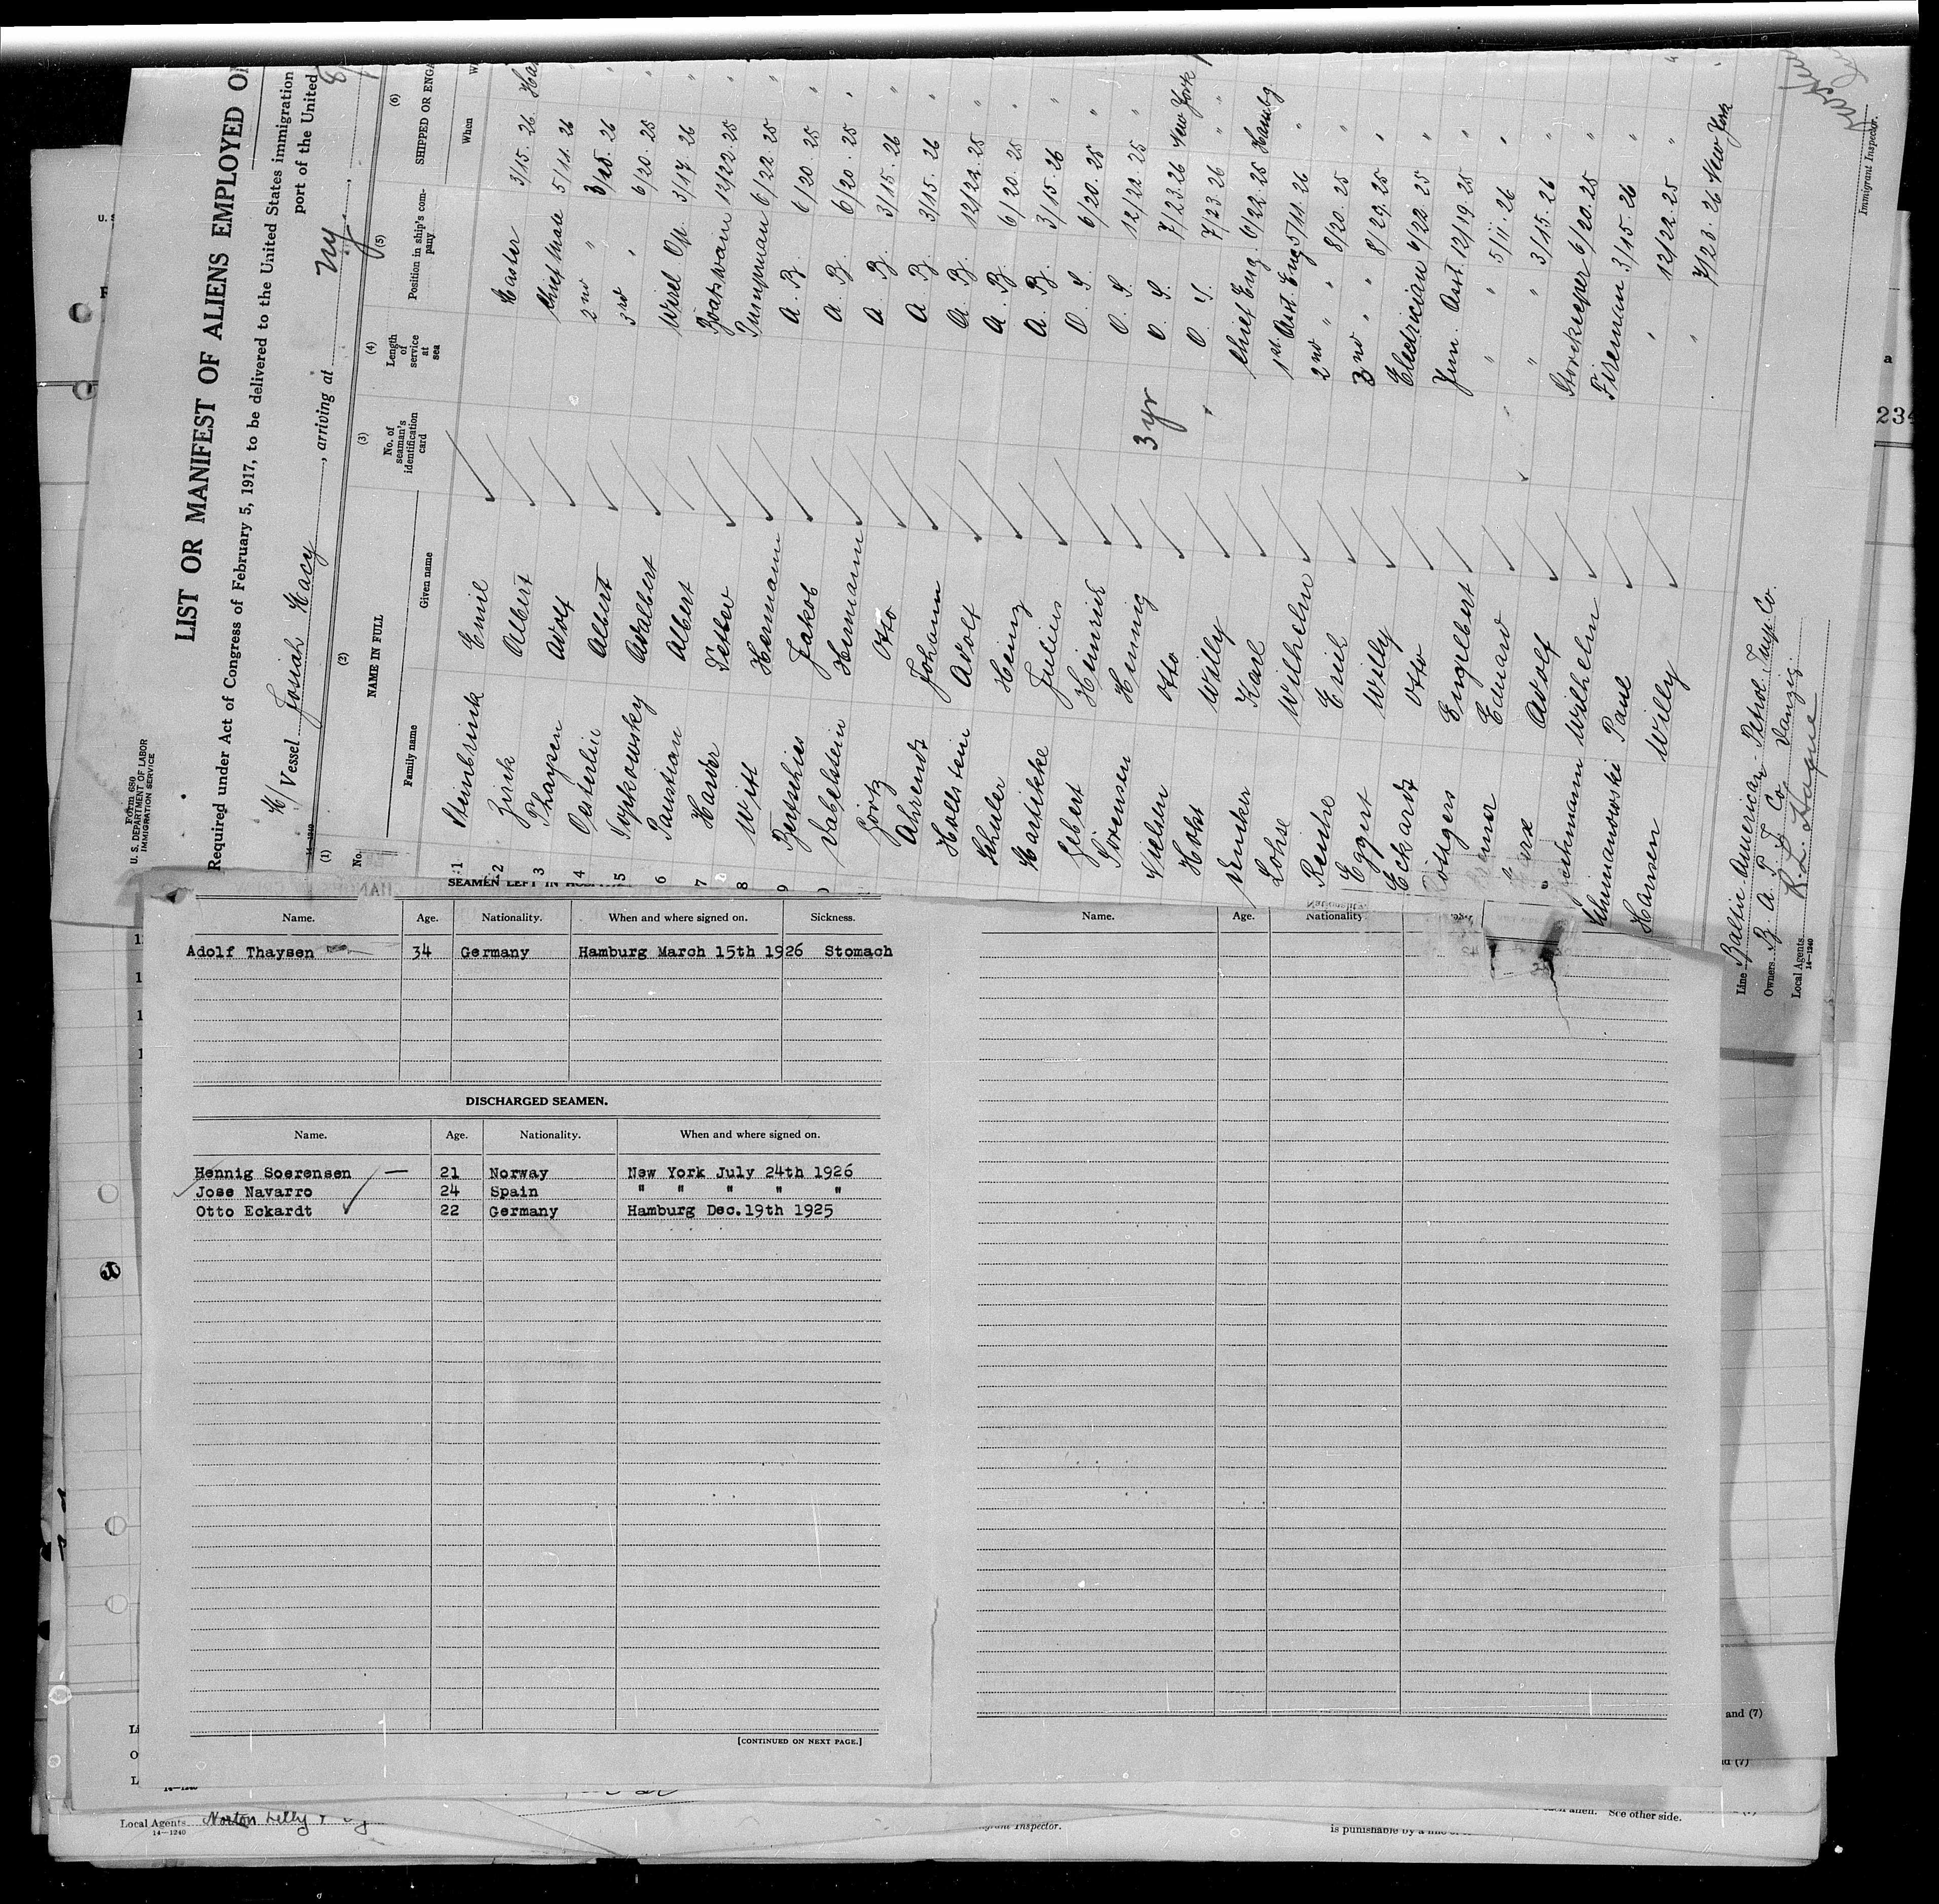 Form 680
U. S. DEPARTMENT OF LABOR
IMMIGRATION SERVICE
LIST OR MANIFEST OF ALIENS EMPLOYED ON
Required under Act of Congress of February 5, 1917, to be delivered to the United States immigration
port of the United
Vessel Josiah Macy, arriving at NY
(1) (2) (3) (4) (5) (6)
No. NAME IN FULL No. of seaman's identification card Length of service at sea Position in ship's company SHIPPED OR ENGA
Family name Given name When
1 Steinbrink Emil Master 3/15. 26 Ha
2 Zirck Albert Chief Mate 5/11. 26 "
3 Thaysen Adolf 2nd " 3/15. 26 "
4 Oesterlin Albert 3rd " 6/20. 25 "
5 Adalbert Wirel. Op. 3/17. 26 "
6 Paustian Albert Boatswain 12/22. 25 "
7 Harder Detlev Pumpman 6/22. 25 "
8 Witt Hermann A. B. 6/20. 25 "
9 Jakob A. B. 6/20. 25 "
Vabelstein Hermann A. B. 3/15. 26 "
Görtz Otto A. B. 3/15. 26 "
Ahrendt Johann A. B. 12/22. 25 "
Hollstein Adolf A. B. 6/20. 25 "
Schuler Heinz A. B. 3/15. 26 "
Julius O. S. 6/20. 25 "
Gebert Heinrich O. S. 12/22. 25 "
Sörensen Henning 3 yr O. S. 7/23. 26 New York
Nielsen Otto " O. S. 7/23. 26 "
Holst Willy Chief Eng. 6/22. 25 Hambg
Karl 1st. Asst. Eng. 5/11. 26 "
Lohse Wilhelm 2nd " " 8/20. 25 "
Reinke Erich 3nd " " 8/29. 25 "
Eggert Willy Electrician 6/22. 25 "
Eckardt Otto Jun. Asst. 12/19. 25 "
Engelbert " " 5/11. 26 "
Eduard " " 3/15. 26 "
Adolf Storekeeper 6/20. 25 "
Wilhelm Fireman 3/15. 26 "
Schimanowski Paul " 12/22. 25 "
Hansen Willy " 7/23. 26 New York
Line Baltic American Petrol. Imp. Co.
Owners B. A. P. I. Co. Danzig
Local Agents R. L. Hague
14—1240
Immigrant Inspector.
234
SEAMEN LEFT IN HOSPITAL
Name. Age. Nationality. When and where signed on. Sickness.
Adolf Thaysen 34 Germany Hamburg March 15th 1926 Stomach
DISCHARGED SEAMEN.
Name. Age. Nationality. When and where signed on.
Hennig Soerensen — 21 Norway New York July 24th 1926
Jose Navarro 24 Spain " " " " "
Otto Eckardt 22 Germany Hamburg Dec.19th 1925
[CONTINUED ON NEXT PAGE.]
Name. Age. Nationality
and (7)
Local Agents Norton Lilly &
14—1240
Inspector.
See other side.
is punishable by a